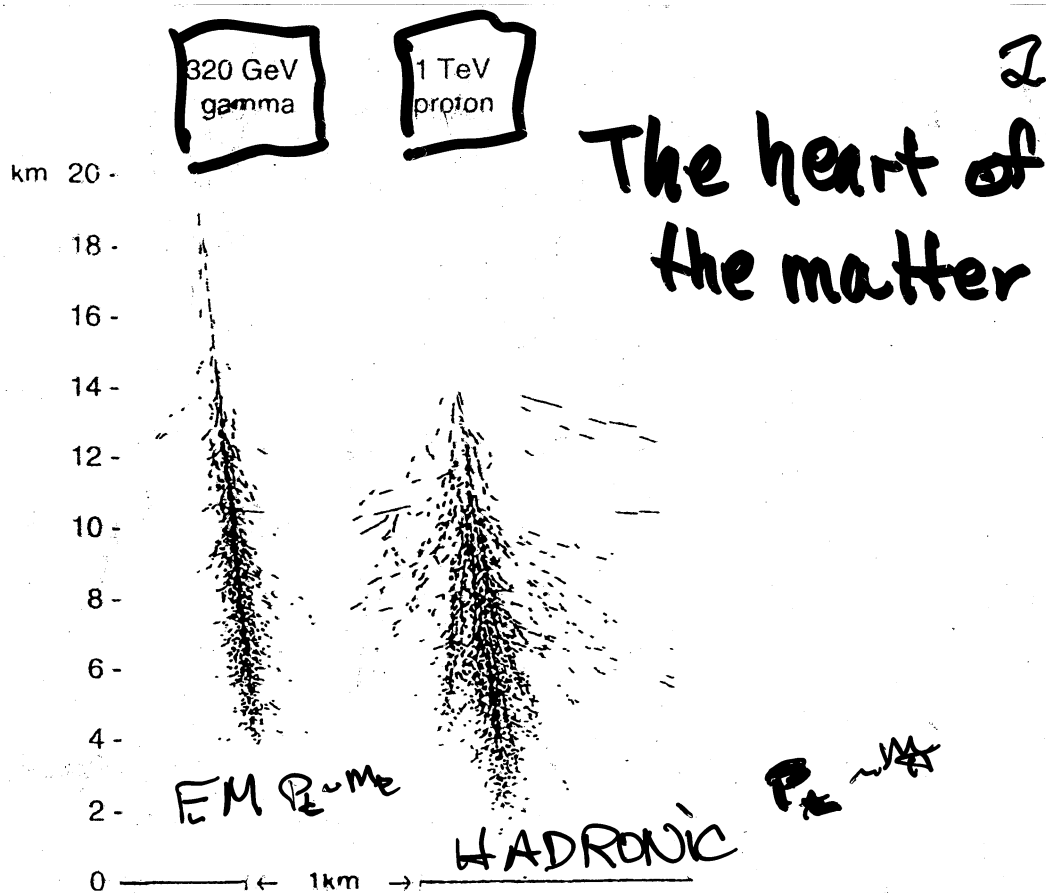 320 GeV
gamma
1 TeV
proton
2
The heart of
the matter
km 20 -
18 -
16 -
14 -
12 -
10 -
8 -
6 -
4 -
2 -
0
EM Pt ~ me
HADRONIC
Pt ~
← 1km →